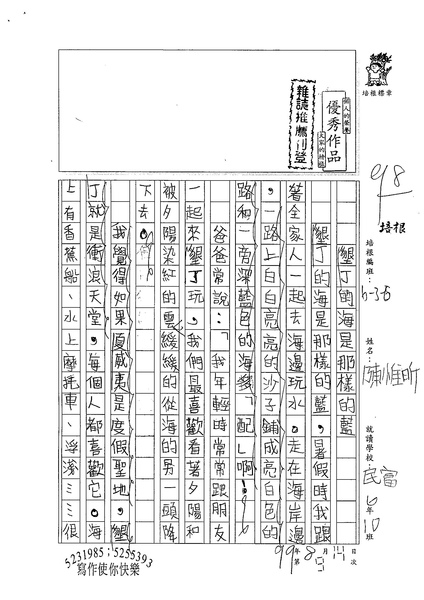 培根標章
個人的榮譽
優秀作品
大家的榜樣
雜誌推薦刊登
98
培根
培根編班：
6-3-6
姓名：
陳惟昕
就讀學校
民富
6年
10班
墾丁的海是那樣的藍
墾丁的海是那樣的藍，暑假時我跟
著全家人一起去海邊玩水。走在海岸邊
，一路上白白亮亮的沙子鋪成亮白色的
路和一旁深藍色的海
配
啊！
爸爸常說：「我年輕時常常跟朋友
一起來墾丁玩，我們最喜歡看著夕陽和
被夕陽染紅的雲緩緩的從海的另一頭降
下去。
我覺得如果夏威夷是度假聖地，墾
丁就是衝浪天堂，每個人都喜歡它。海
上有香蕉船、水上摩托車、浮潛……很
99年8月14日
第5次
5231985；5255393
寫作使你快樂